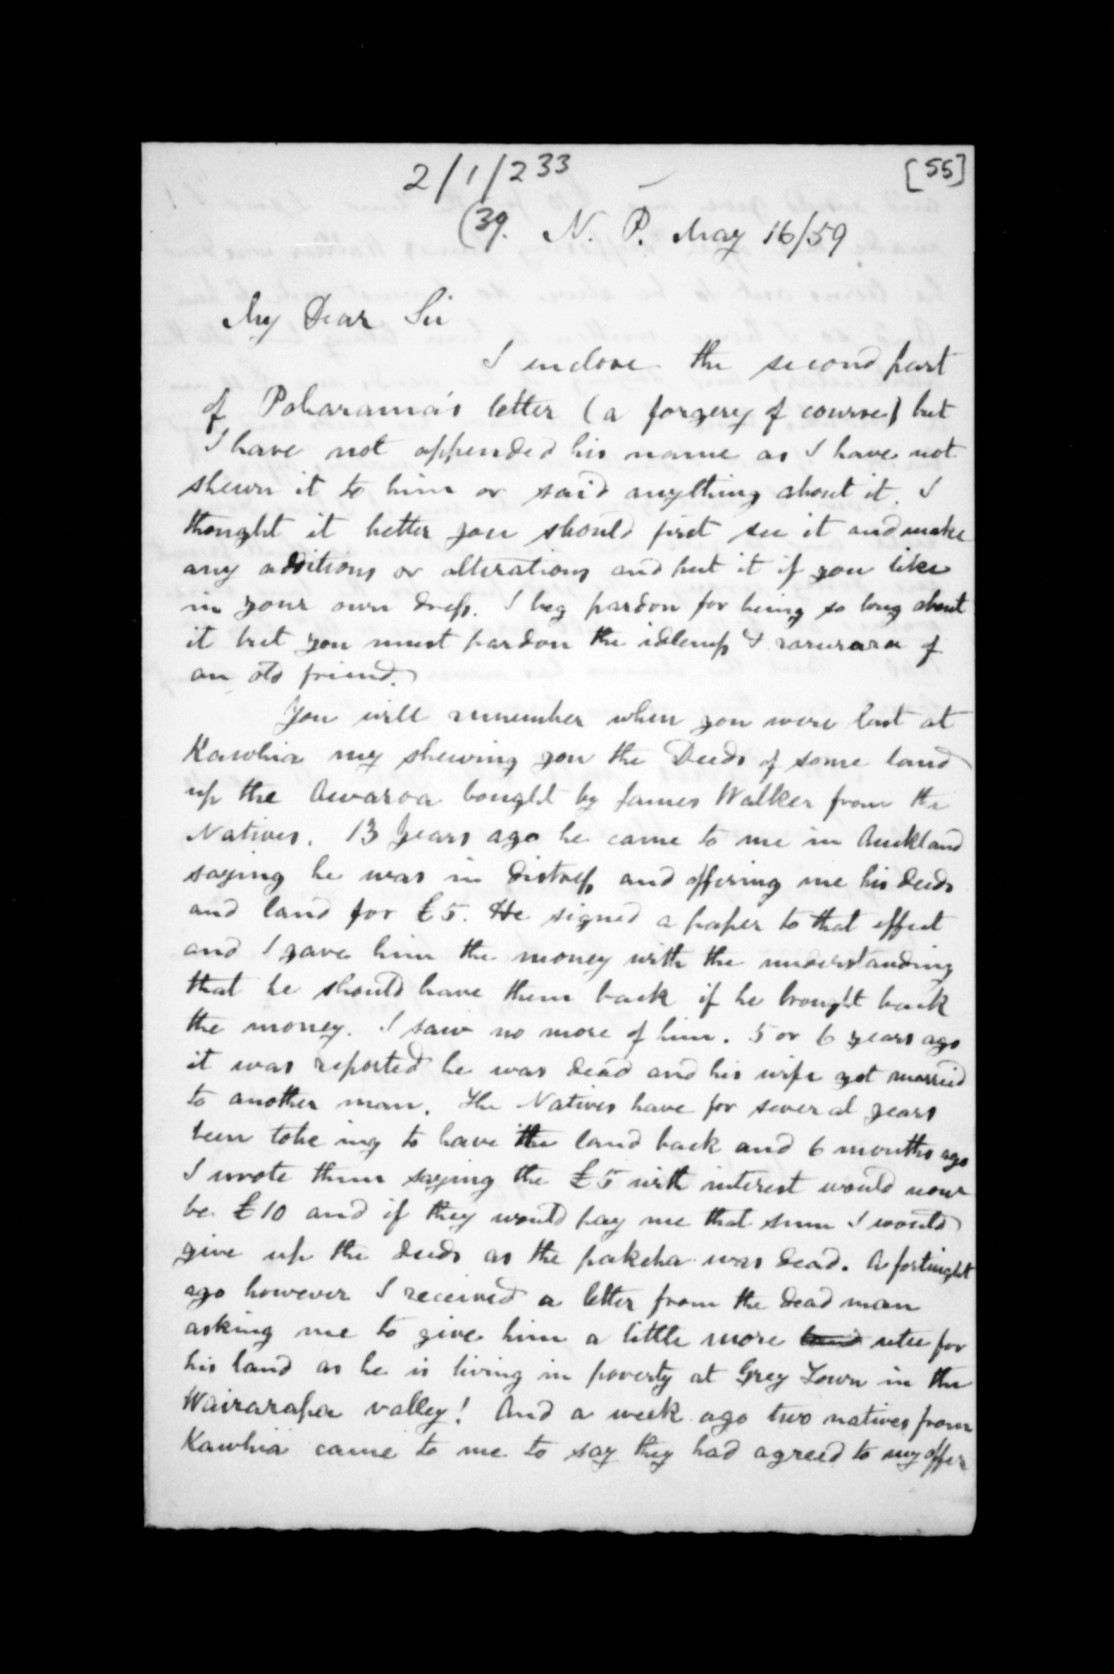 2/1/233
[55]
(39. N. P. May 16/59
My Dear Sir
I enclose the second part
of Poharama's letter (a forgery of course) but
I have not appended his name as I have not
shewn it to him or said anything about it. I
thought it better you should first see it and make
any additions or alterations and put it if you like
in your own dress. I beg pardon for being so long about
it but you must pardon the idleness & raruraru of
an old friend.
You will remember when you were last at
Kawhia my shewing you the Deeds of some land
up the Awaroa bought by James Walker from the
Natives. 13 Years ago he came to me in Auckland
saying he was in distress and offering me his deeds
and land for £5. He signed a paper to that effect
and I gave him the money with the understanding
that he should have them back if he brought back
the money. I saw no more of him. 5 or 6 years ago
it was reported he was dead and his wife got married
to another man. The Natives have for several years
been tohe ing to have the land back and 6 months ago
I wrote them saying the £5 with interest would now
be £10 and if they would pay me that sum I would
give up the deeds as the pakeha was dead. A fortnight
ago however I received a letter from the dead man
asking me to give him a little more utu for
his land as he is living in poverty at Grey Town in the
Wairarapa valley! And a week ago two natives from
Kawhia came to me to say they had agreed to my offer